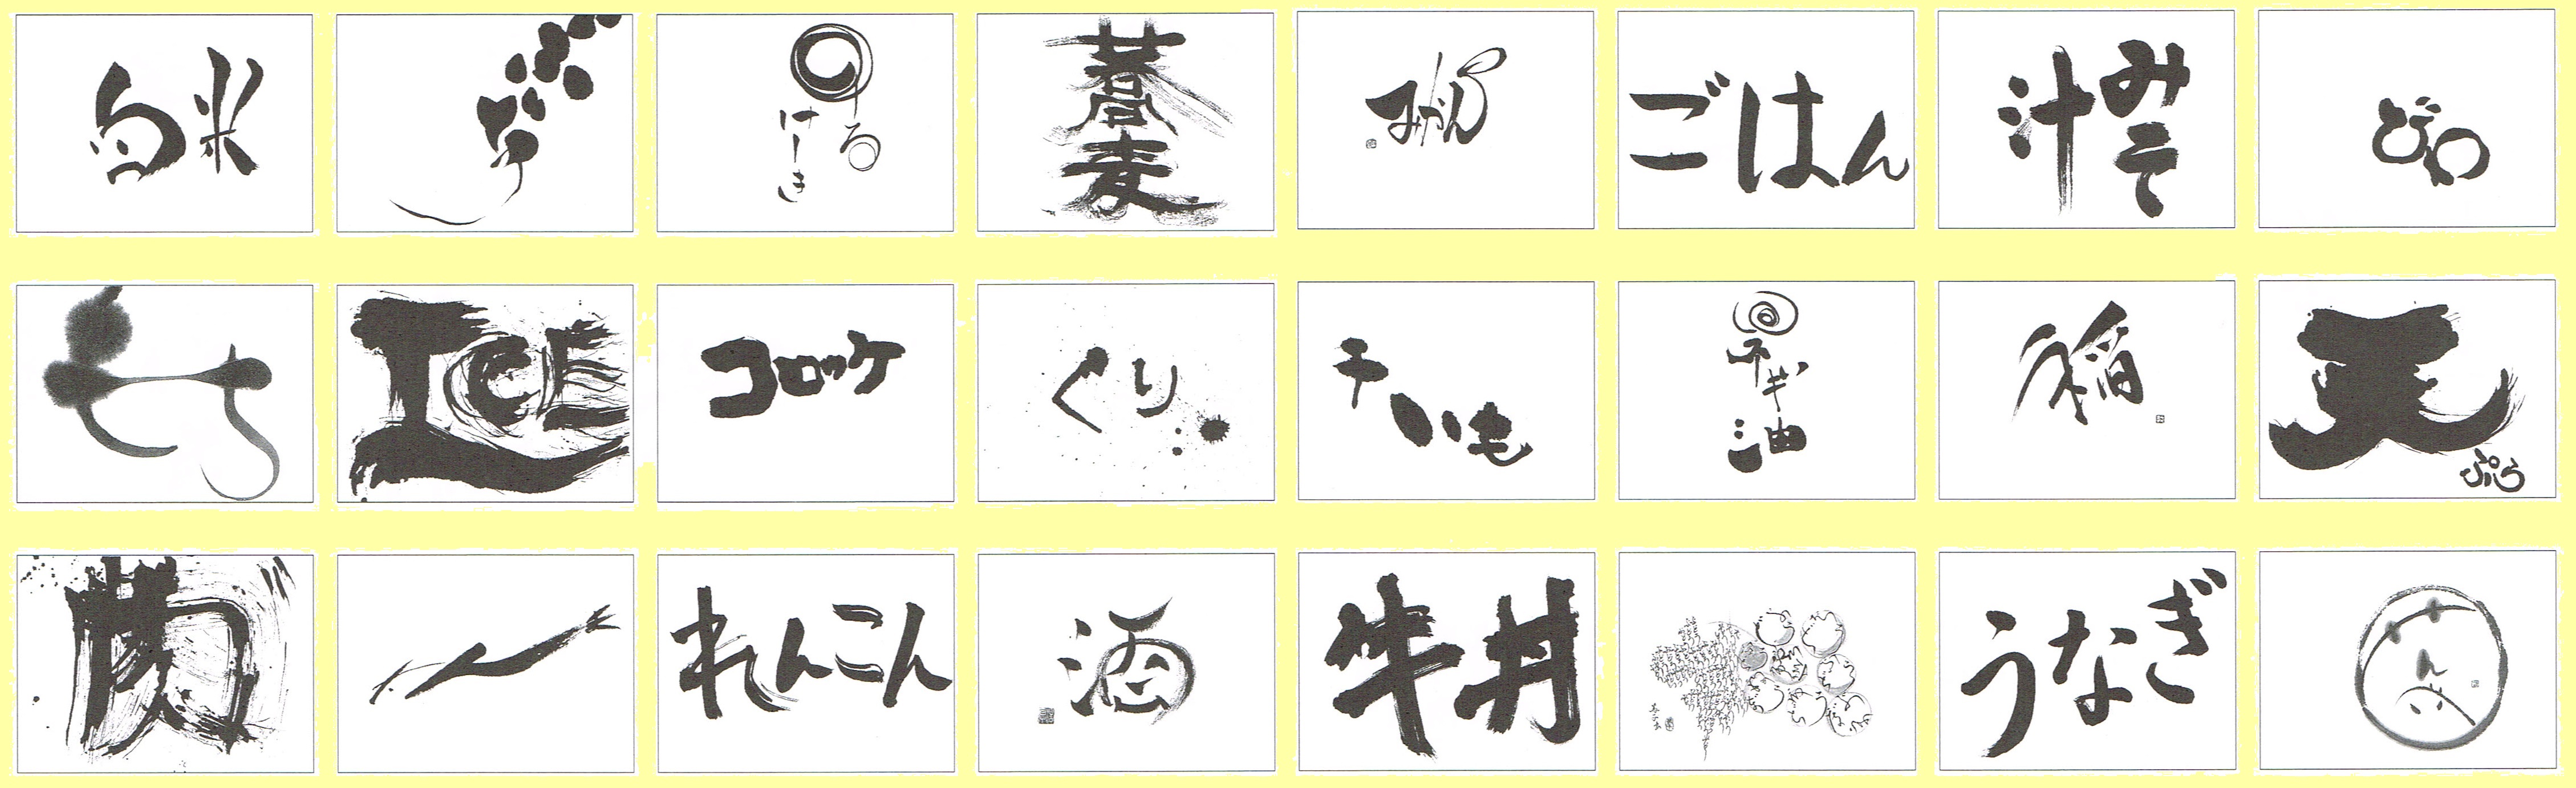 白米
ろーるけーき
蕎麦
みかん
ごはん
みそ汁
びわ
もち
ICE
コロッケ
くり
干いも
ネギ油
稲
天ぷら
肉
れんこん
酒
牛丼
うなぎ